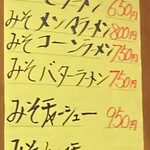 ラーメン 650円
みそ メンマラーメン 800円
みそ コーンラーメン 750円
みそ バターラーメン 750円
みそチャーシュー 950円
みそ